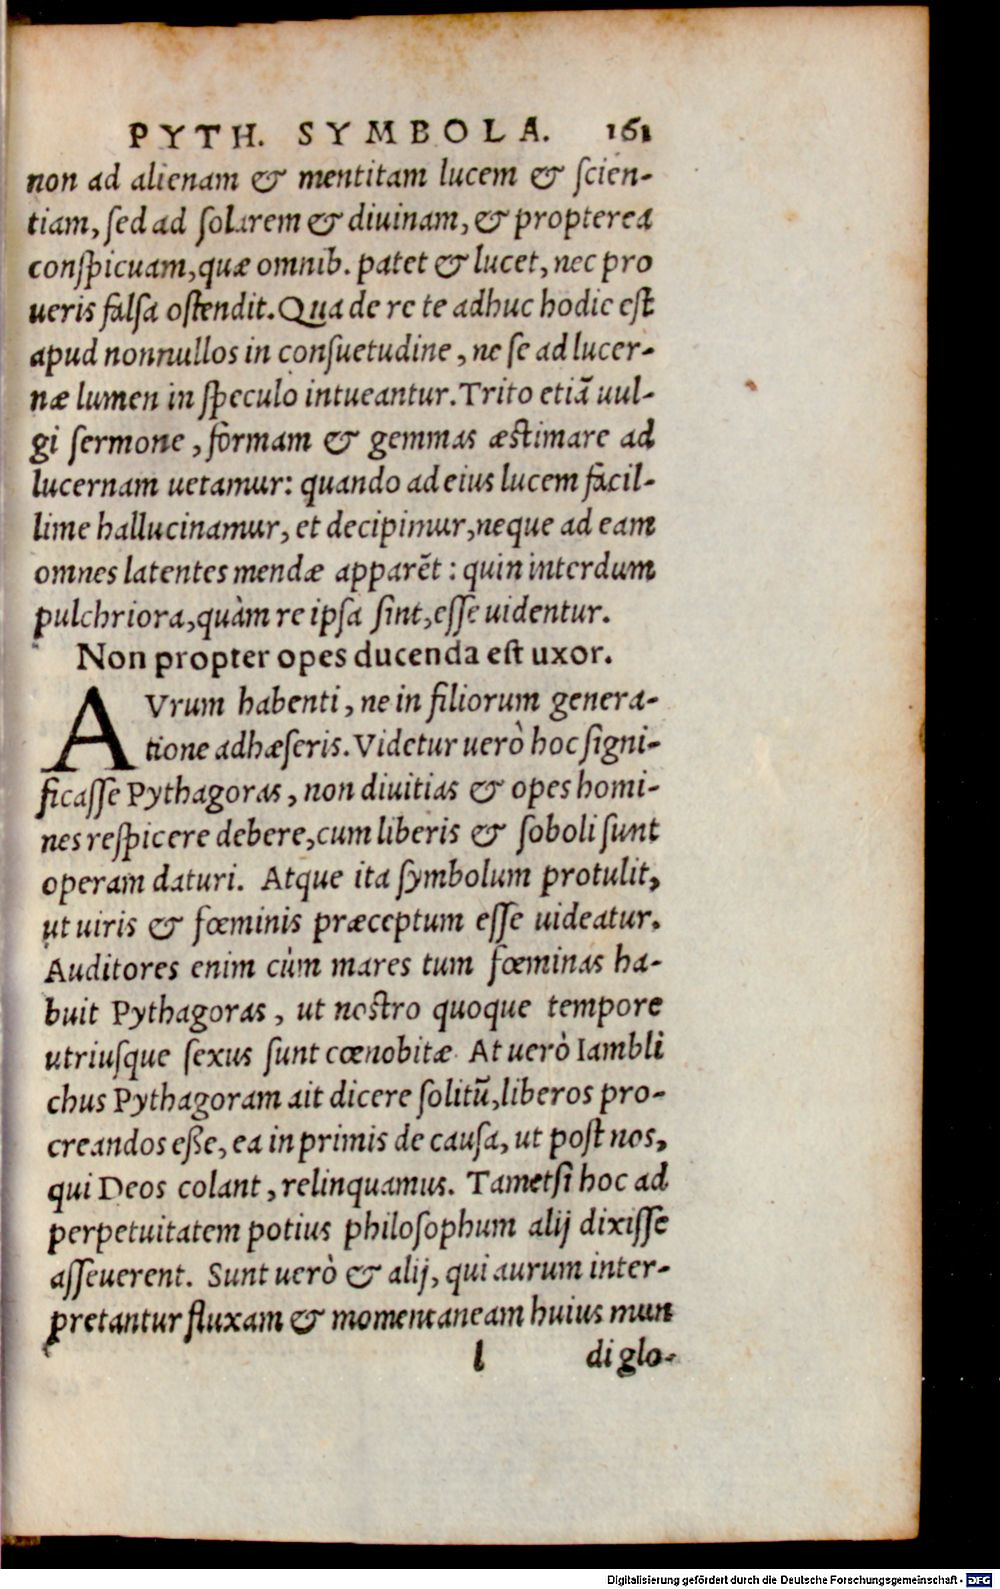 PYTH. SYMBOLA. 161
non ad alienam & mentitam lucem & scien-
tiam, sed ad solarem & diuinam, & propterea
conspicuam, quæ omnib. patet & lucet, nec pro
ueris falsa ostendit. Qua de re te adhuc hodie est
apud nonnullos in consuetudine, ne se ad lucer-
næ lumen in speculo intueantur. Trito etiã uul-
gi sermone, formam & gemmas æstimare ad
lucernam uetamur: quando ad eius lucem facil-
lime hallucinamur, et decipimur, neque ad eam
omnes latentes mendæ apparẽt: quin interdum
pulchriora, quàm re ipsa sint, esse uidentur.
Non propter opes ducenda est uxor.
AVrum habenti, ne in filiorum genera-
tione adhæseris. Videtur uerò hoc signi-
ficasse Pythagoras, non diuitias & opes homi-
nes respicere debere, cum liberis & soboli sunt
operam daturi. Atque ita symbolum protulit,
ut uiris & fœminis præceptum esse uideatur.
Auditores enim cùm mares tum fœminas ha-
buit Pythagoras, ut nostro quoque tempore
utriusque sexus sunt cœnobitæ. At uerò Iambli
chus Pythagoram ait dicere solitũ, liberos pro-
creandos eße, ea in primis de causa, ut post nos,
qui Deos colant, relinquamus. Tametsi hoc ad
perpetuitatem potius philosophum alij dixisse
asseuerent. Sunt uerò & alij, qui aurum inter-
pretantur fluxam & momentaneam huius mun
l di glo-
Digitalisierung gefördert durch die Deutsche Forschungsgemeinschaft - DFG